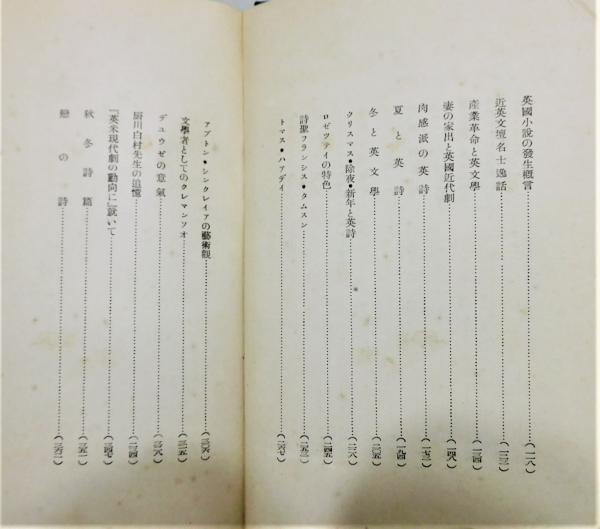 英國小說の發生槪言………(一一八)
近英文壇名士逸話………
產業革命と英文學………
妻の家出と英國近代劇………(一四八)
肉感派の英詩………
夏と英詩………
冬と英文學………(二〇五)
クリスマス・除夜・新年と英詩………
ロゼツティの特色………(二四五)
詩聖フランシス・タムスン………
トマス・ハアデイ………(二六七)
アプトン・シンクレイアの藝術觀………(三〇六)
文學者としてのクレマンソオ………
デユウゼの意氣………
厨川白村先生の追憶………
「英米現代劇の動向に」就いて………(三四七)
秋冬詩篇………(三五一)
戀の詩………